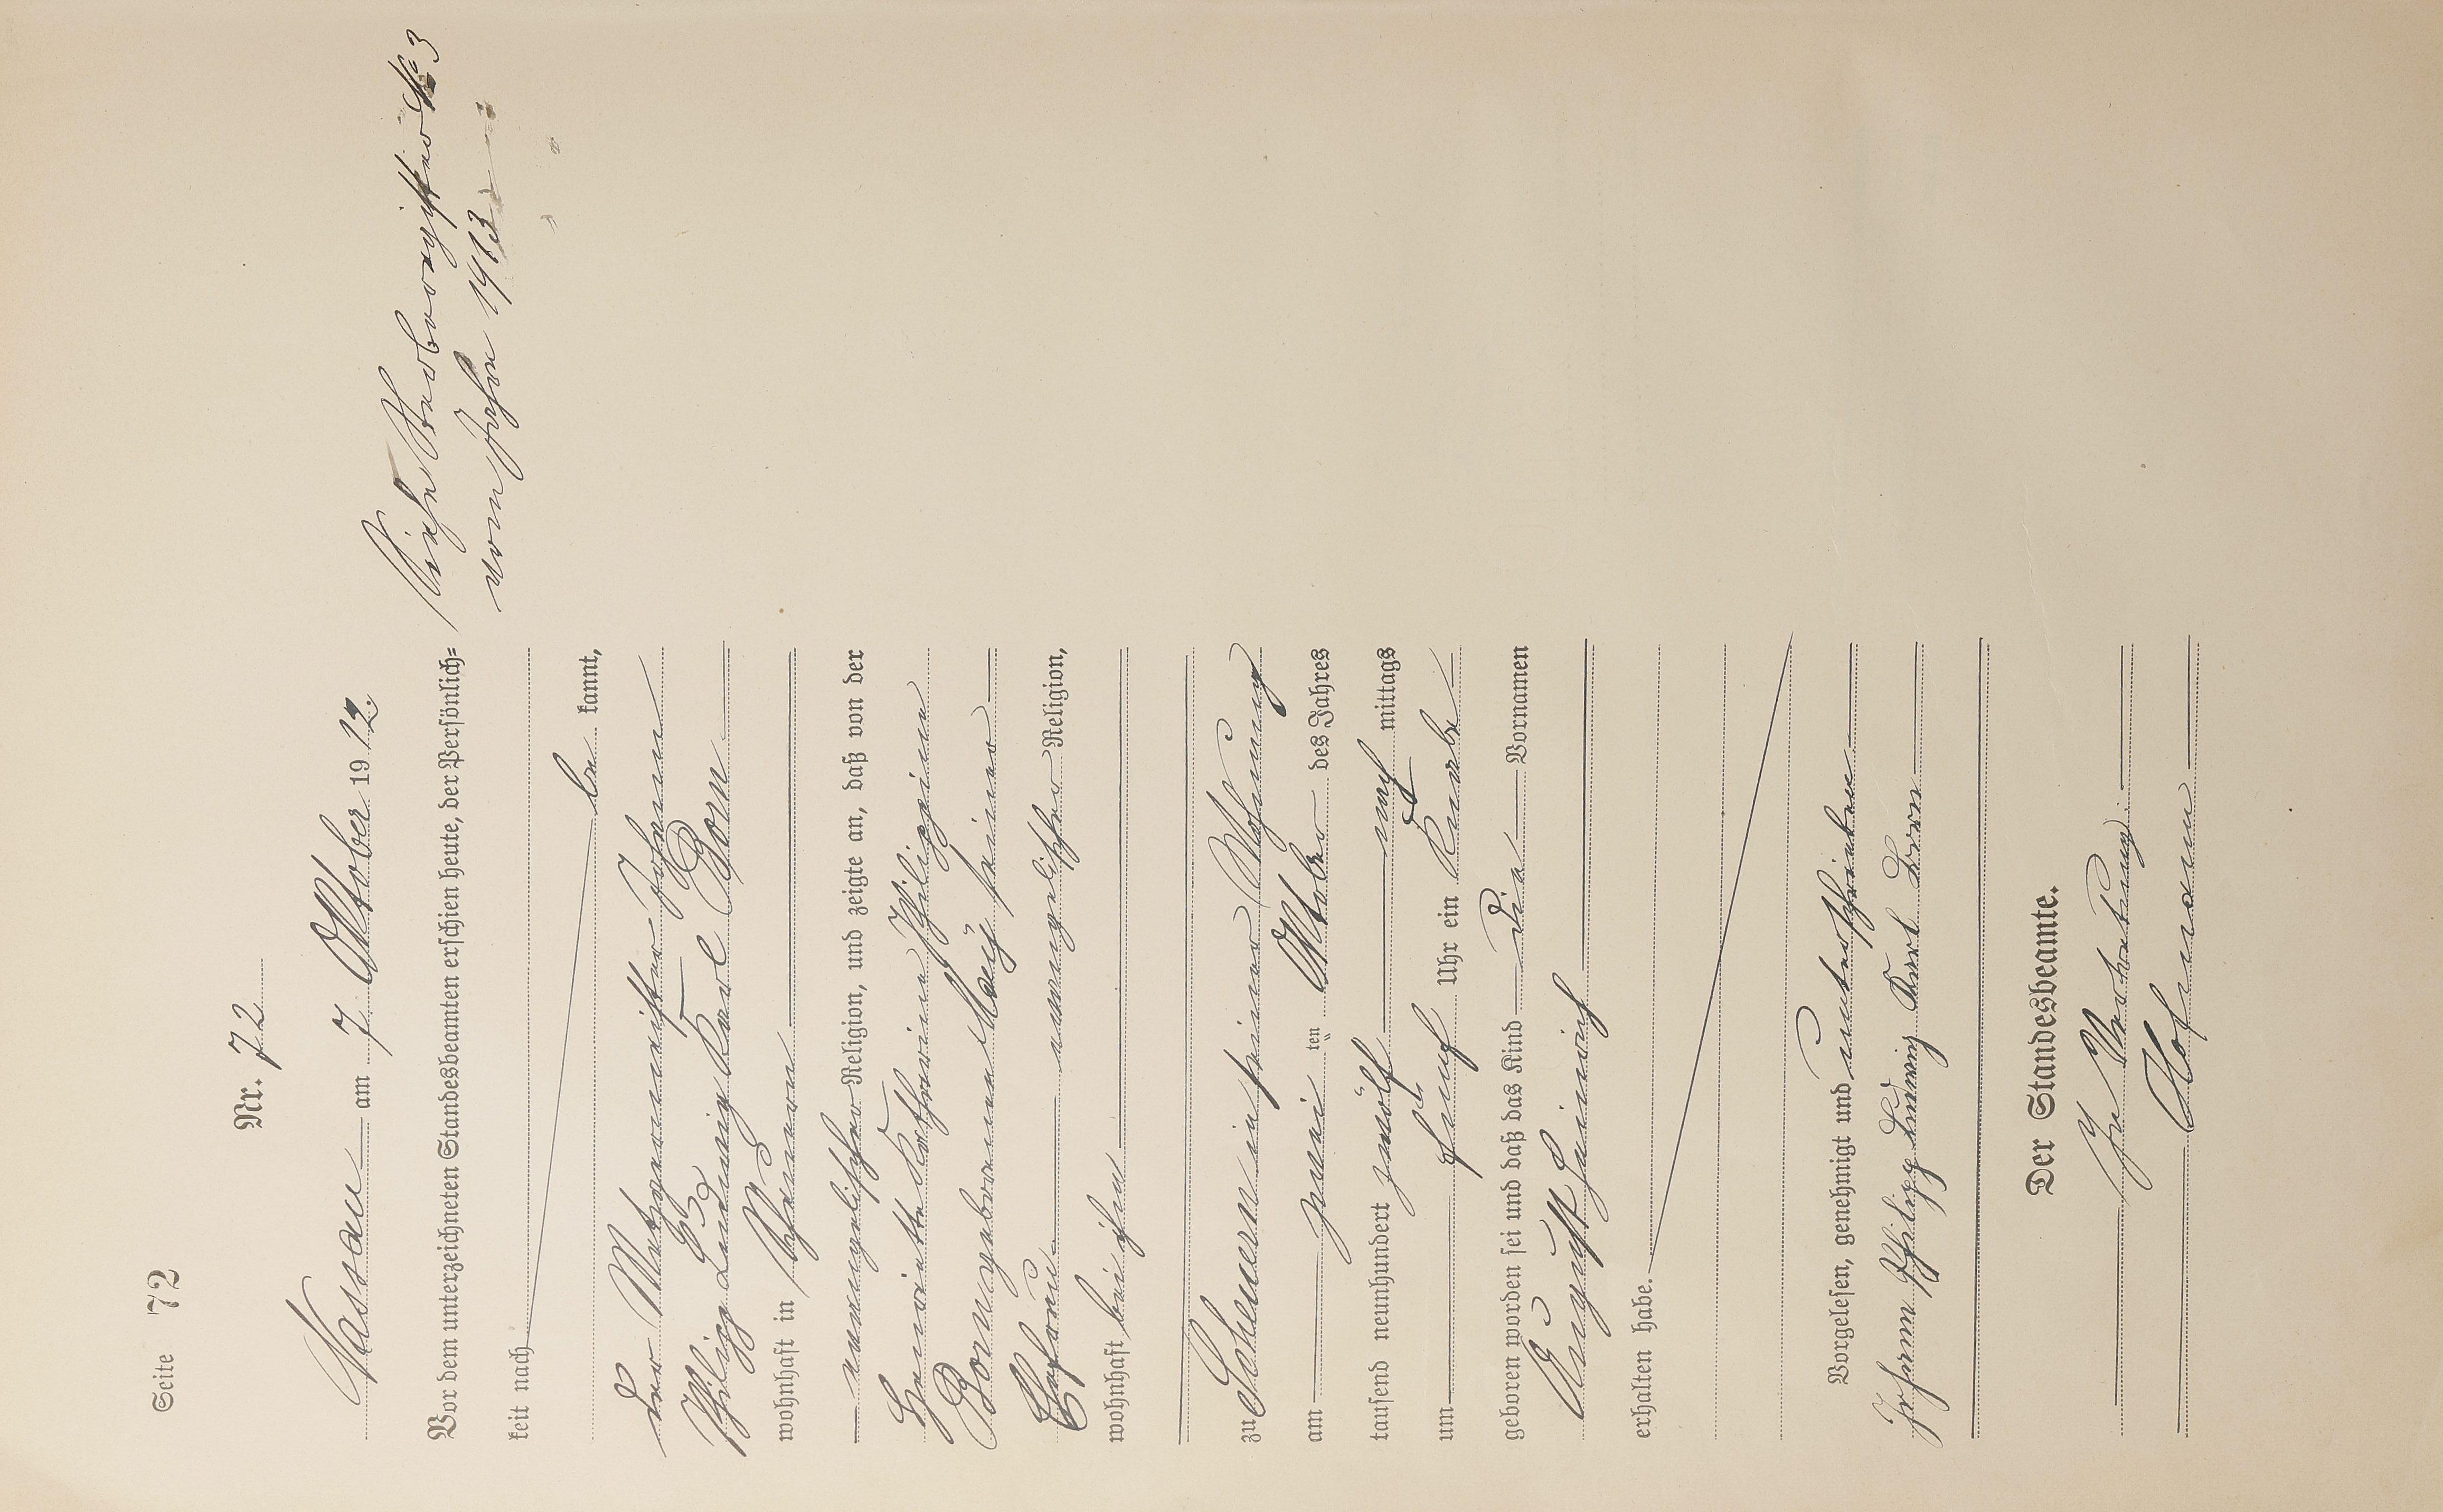 Seite 72
Nr. 72
Nassau am 7. Oktober 1912.
Vor dem unterzeichneten Standesbeamten erschien heute, der Persönlich=
keit nach
be kannt,
der Metzgermeister Johann
Philipp Ludwig Karl Born
wohnhaft in Scheuern
evangelischer Religion, und zeigte an, daß von der
Henriette Katharina Philippine
Born geborenen May seiner
Ehefrau evangelischer Religion,
wohnhaft bei ihm
zu Scheuern in seiner Wohnung
am zwei ten Oktober des Jahres
tausend neunhundert zwölf nach mittags
um fünf Uhr ein Knabe
geboren worden sei und daß das Kind die Vornamen
August Heinrich
erhalten habe.
Vorgelesen, genehmigt und unterschrieben
Johann Philipp Ludwig Karl Born
Der Standesbeamte.
In Vertretung:
Hofmann
Siehe Sterberegister No 3
vom Jahre 1913